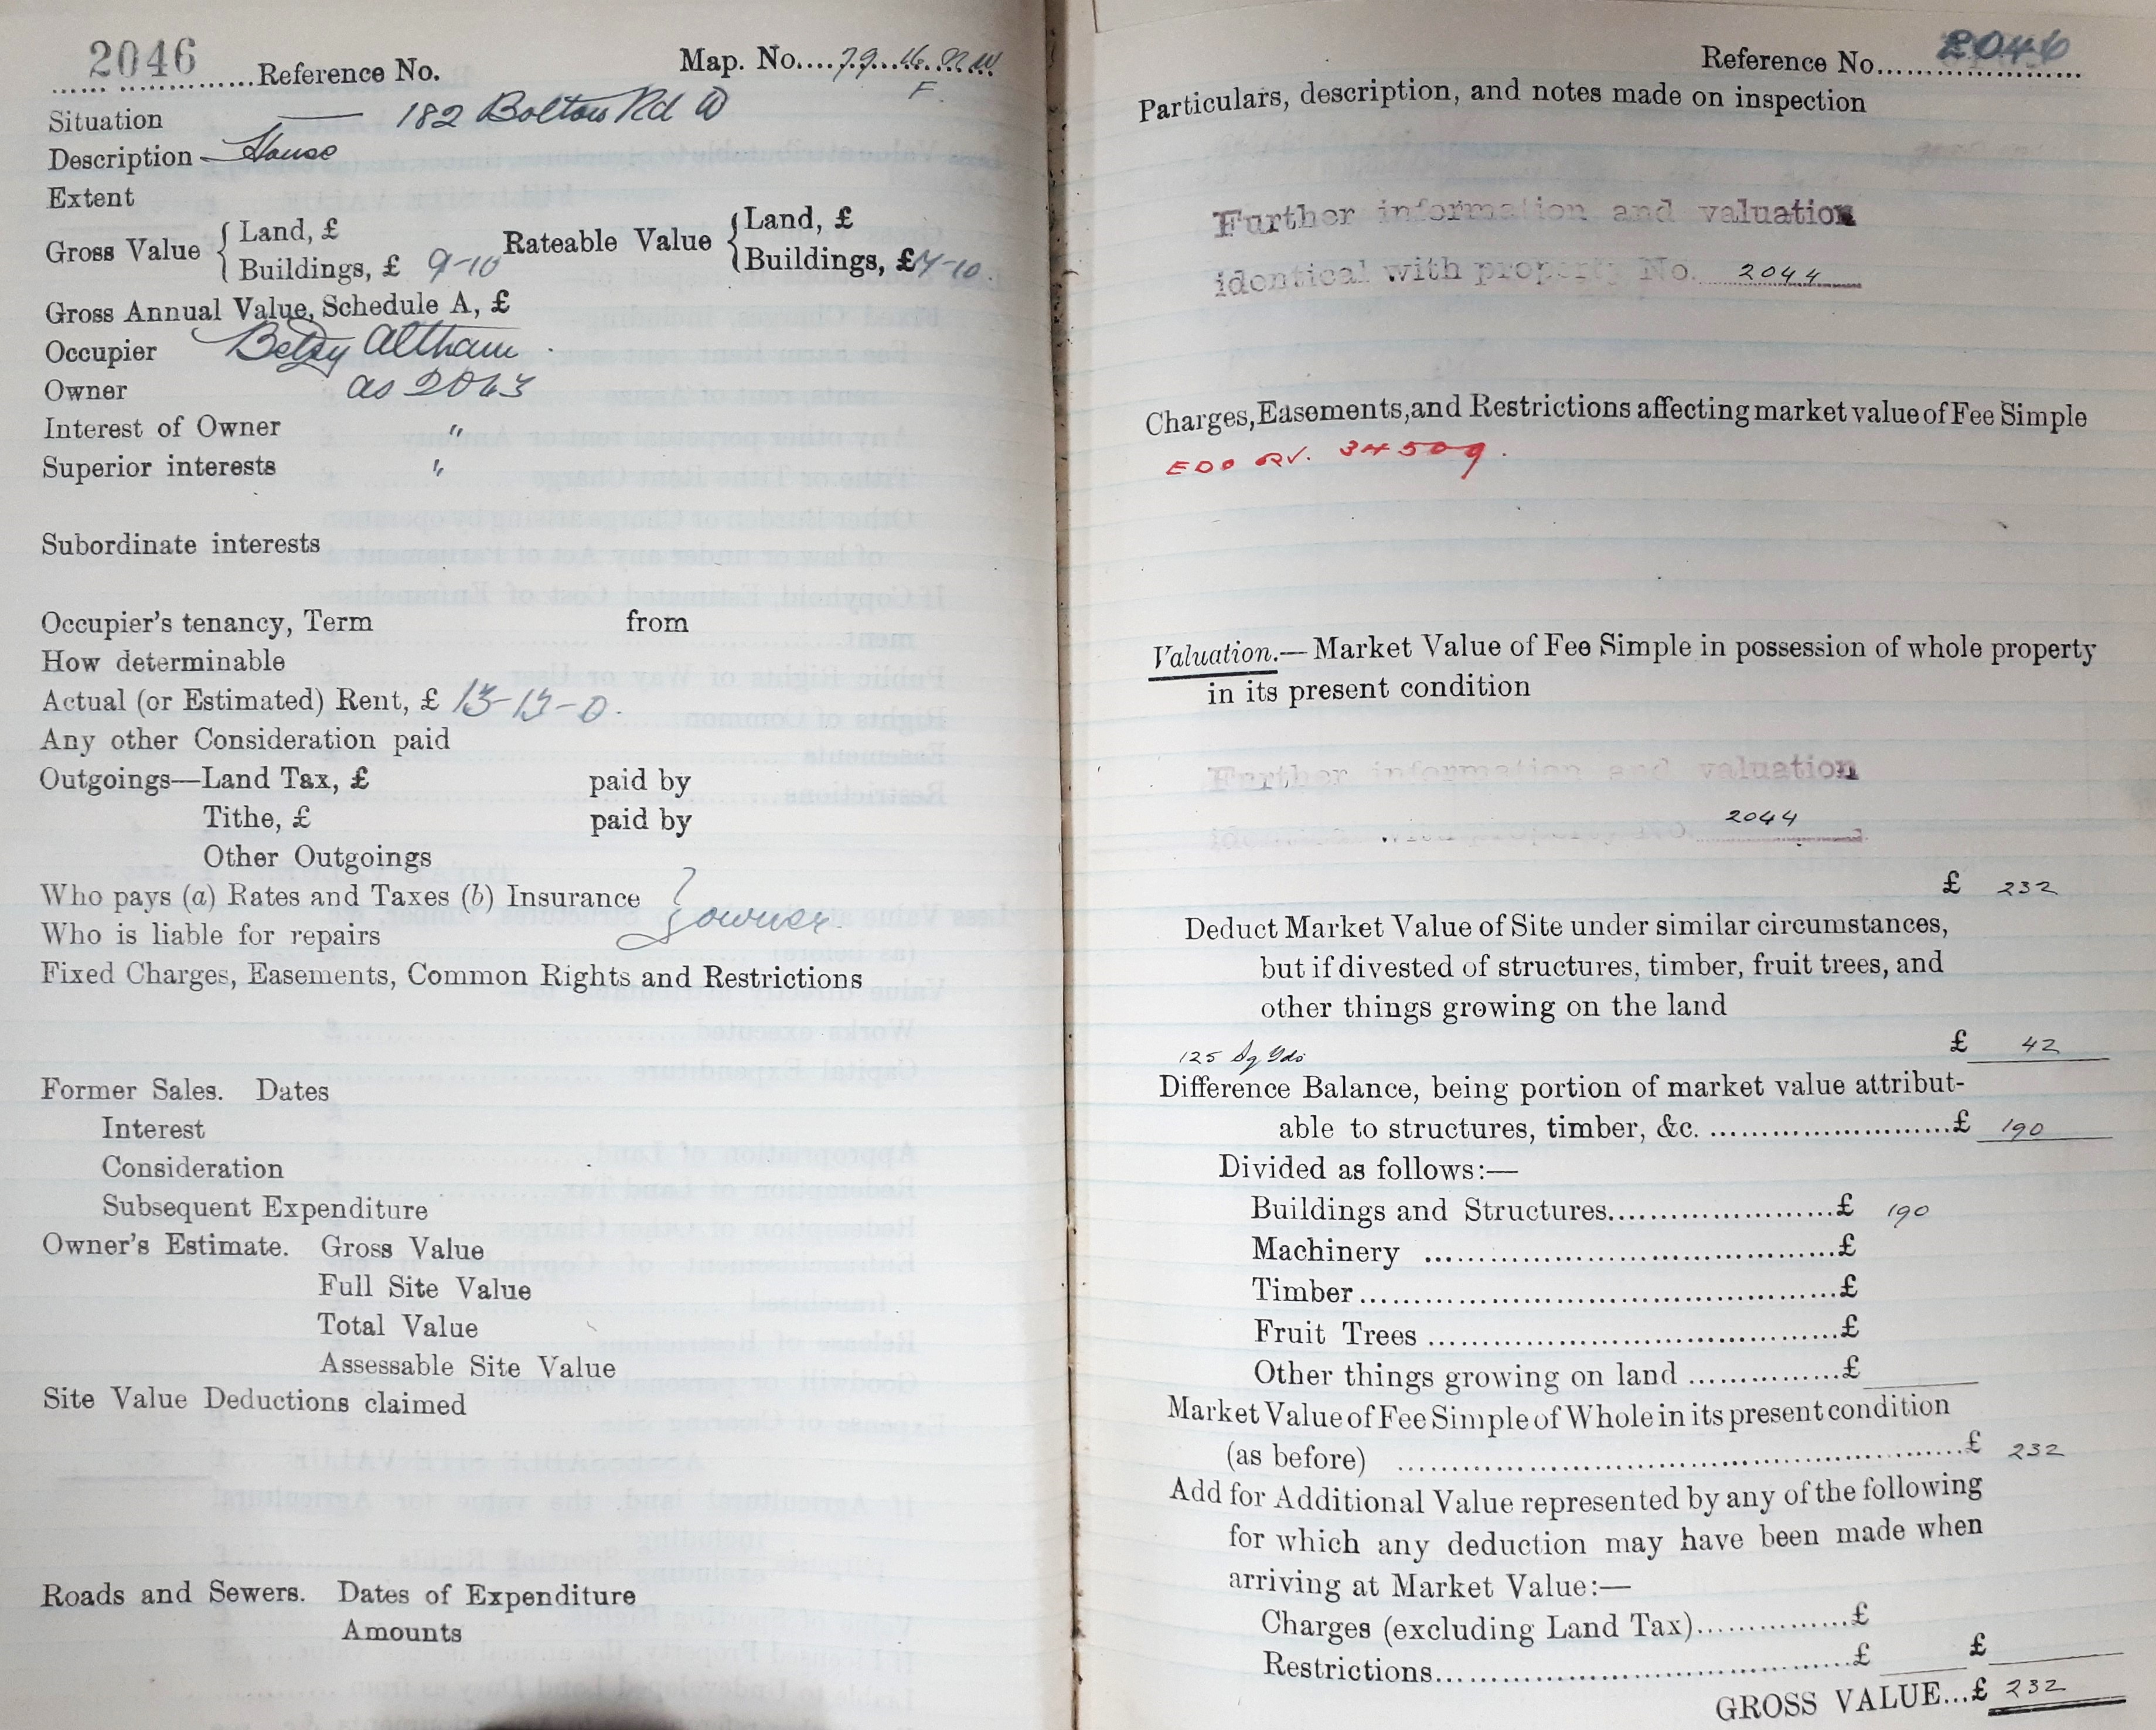 2046 ......Reference No. Map. No....79.16
F.
Situation — 182 Bolton Rd W
Description — House
Extent
Gross Value { Land, £ Rateable Value { Land, £
Buildings, £ 9-10 Buildings, £ 7-10.
Gross Annual Value, Schedule A, £
Occupier Betsy Altham
Owner as 2043
Interest of Owner "
Superior interests "
Subordinate interests
Occupier's tenancy, Term from
How determinable
Actual (or Estimated) Rent, £ 13-13-0.
Any other Consideration paid
Outgoings—Land Tax, £ paid by
Tithe, £ paid by
Other Outgoings
Who pays (a) Rates and Taxes (b) Insurance } owner
Who is liable for repairs
Fixed Charges, Easements, Common Rights and Restrictions
Former Sales. Dates
Interest
Consideration
Subsequent Expenditure
Owner's Estimate. Gross Value
Full Site Value
Total Value
Assessable Site Value
Site Value Deductions claimed
Roads and Sewers. Dates of Expenditure
Amounts
Reference No. 2046
Particulars, description, and notes made on inspection
Further information and valuation
identical with property No. 2044
Charges, Easements, and Restrictions affecting market value of Fee Simple
34509.
Valuation.— Market Value of Fee Simple in possession of whole property
in its present condition
Further information and valuation
2044
£ 232
Deduct Market Value of Site under similar circumstances,
but if divested of structures, timber, fruit trees, and
other things growing on the land
125 Sq Yds £ 42
Difference Balance, being portion of market value attribut-
able to structures, timber, &c. ........£ 190
Divided as follows:—
Buildings and Structures........£ 190
Machinery ........£
Timber........£
Fruit Trees ........£
Other things growing on land ........£
Market Value of Fee Simple of Whole in its present condition
(as before) ........£ 232
Add for Additional Value represented by any of the following
for which any deduction may have been made when
arriving at Market Value:—
Charges (excluding Land Tax)........£
Restrictions........£ £
GROSS VALUE...£ 232